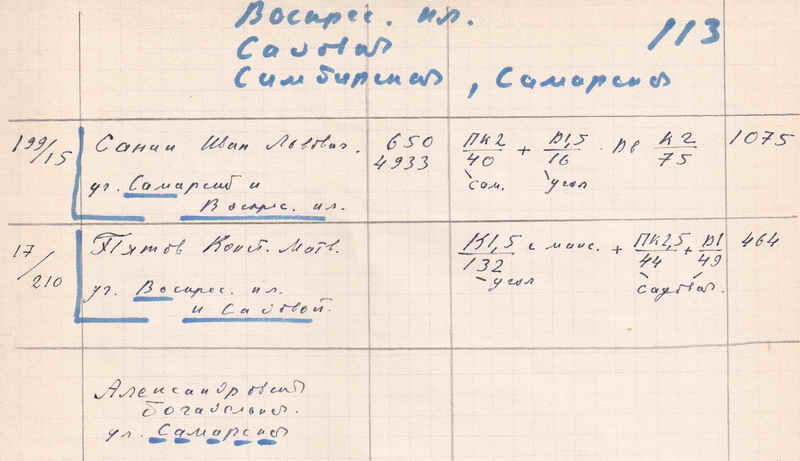 Воскрес. пл.
113
Садовая
Симбирская, Самарская
199/15 Санин Иван Львович. 650 ПК2/40 + Д1,5/16 · К2/75 1075
4933
сам. угол
уг. Самарской и
Воскрес. пл.
17/210 Пятов Конст. Матв. К1,5/132 с манс. + ПК2,5/44 + Д1/49 464
угол Садовая.
уг. Воскрес. пл.
и Садовой.
Александровская
богадельня.
ул. Самарская